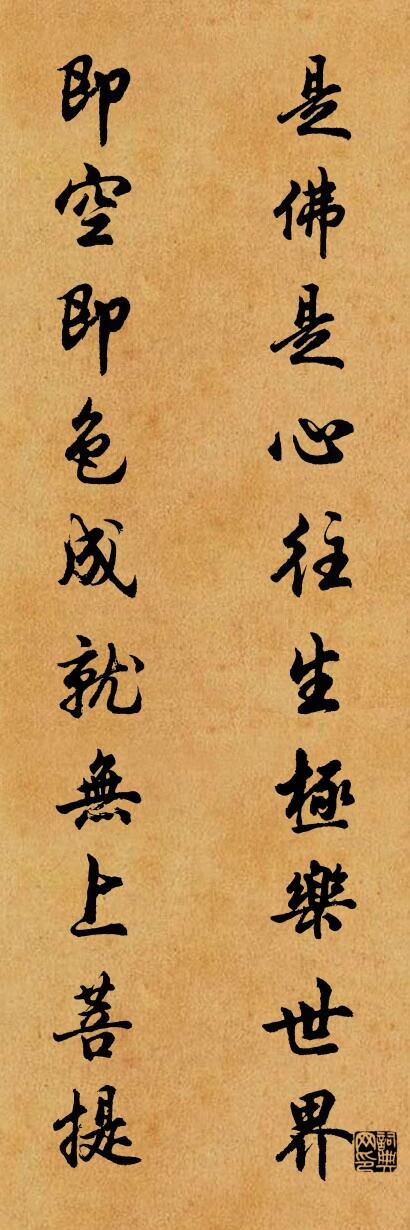 是佛是心往生極樂世界
即空即色成就無上菩提
詞典网印